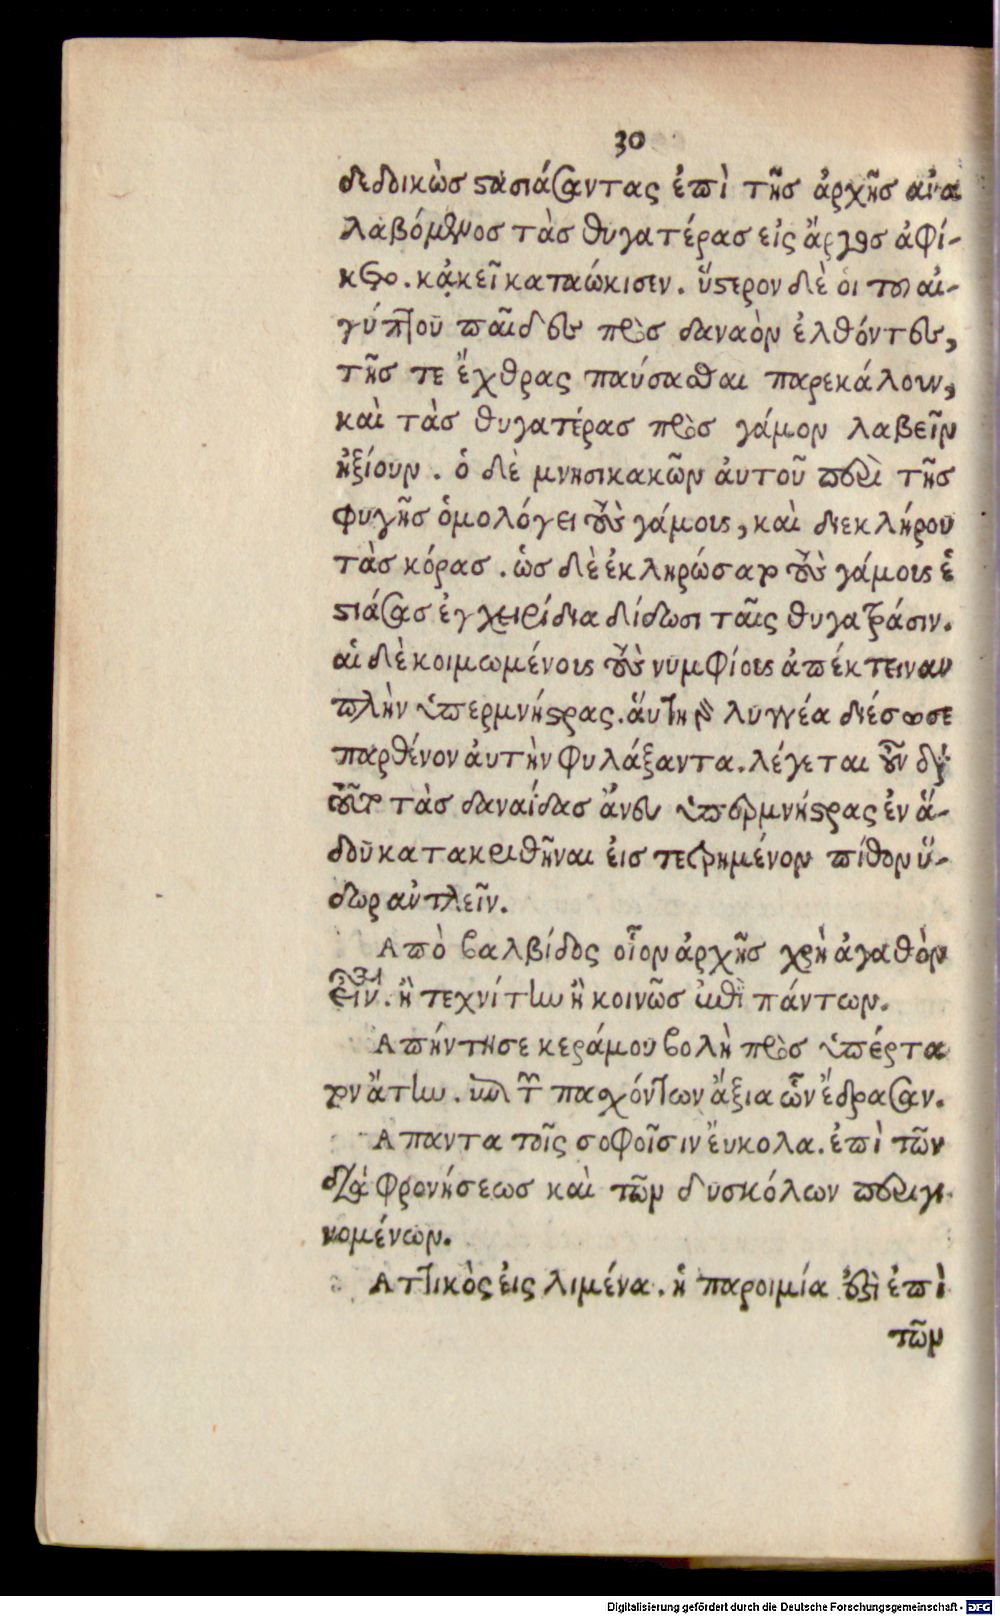 30
δεδοικὼσ στασιάσαντας ἐπὶ τῆσ ἀρχῆσ ἀνα
λαβόμενοσ τὰσ θυγατέρασ εἰς ἄργοσ ἀφί-
κετο. κἀκεῖ κατῳώκισεν. ὕστερον δὲ ὁι τοῦ αἰ-
γύπτου παῖδες πρὸσ δαναὸν ἐλθόντες,
τῆσ τε ἔχθρας παύσασθαι παρεκάλουν,
καὶ τὰσ θυγατέρασ πρὸσ γάμον λαβεῖν
ἠξίουν. ὁ δὲ μνησικακῶν ἀυτοῦ περὶ τῆσ
φυγῆσ ὁμολόγει τοὺσ γάμους, καὶ διεκλήρου
τὰσ κόρασ. ὡσ δὲ ἐκληρώσαντο τοὺσ γάμους ἑ
στιάσασ ἐγχειρίδια δίδωσι ταῖς θυγατράσιν.
αἱ δὲ κοιμωμένους τοὺσ νυμφίους ἀπέκτειναν
πλὴν ὑπερμνήστρας. ἅυτη γὰρ λυγγέα διέσωσε
παρθένον ἀυτὴν φυλάξαντα. λέγεται οὖν διὰ
τοῦτο τὰσ δαναίδασ ἄνευ ὑπερμνήστρας ἐν ἅ-
δου κατακριθῆναι ἐισ τετρημένον πίθον ὕ-
δωρ αὐτλεῖν.
Ἀπὸ βαλβίδος οἷον ἀρχῆσ χρὴ ἀγαθὸν
εἶναι. ἢ τεχνίτην ἢ κοινῶσ ἐπὶ πάντων.
Ἀπήντησε κεράμου βολὴ πρὸσ ὑπέρτα
τον ἄτην. ὑπὲρ τῶν παχόντων ἄξια ὧν ἔδρασαν.
Ἅπαντα τοῖς σοφοῖσιν ἔυκολα. ἐπὶ τῶν
διὰ φρονήσεωσ καὶ τῶν δυσκόλων περιγι
νομένων.
Ἀττικὸς ἐις λιμένα. ἡ παροιμία ἐστὶ ἐπὶ
τῶν
Digitalisierung gefördert durch die Deutsche Forschungsgemeinschaft - DFG